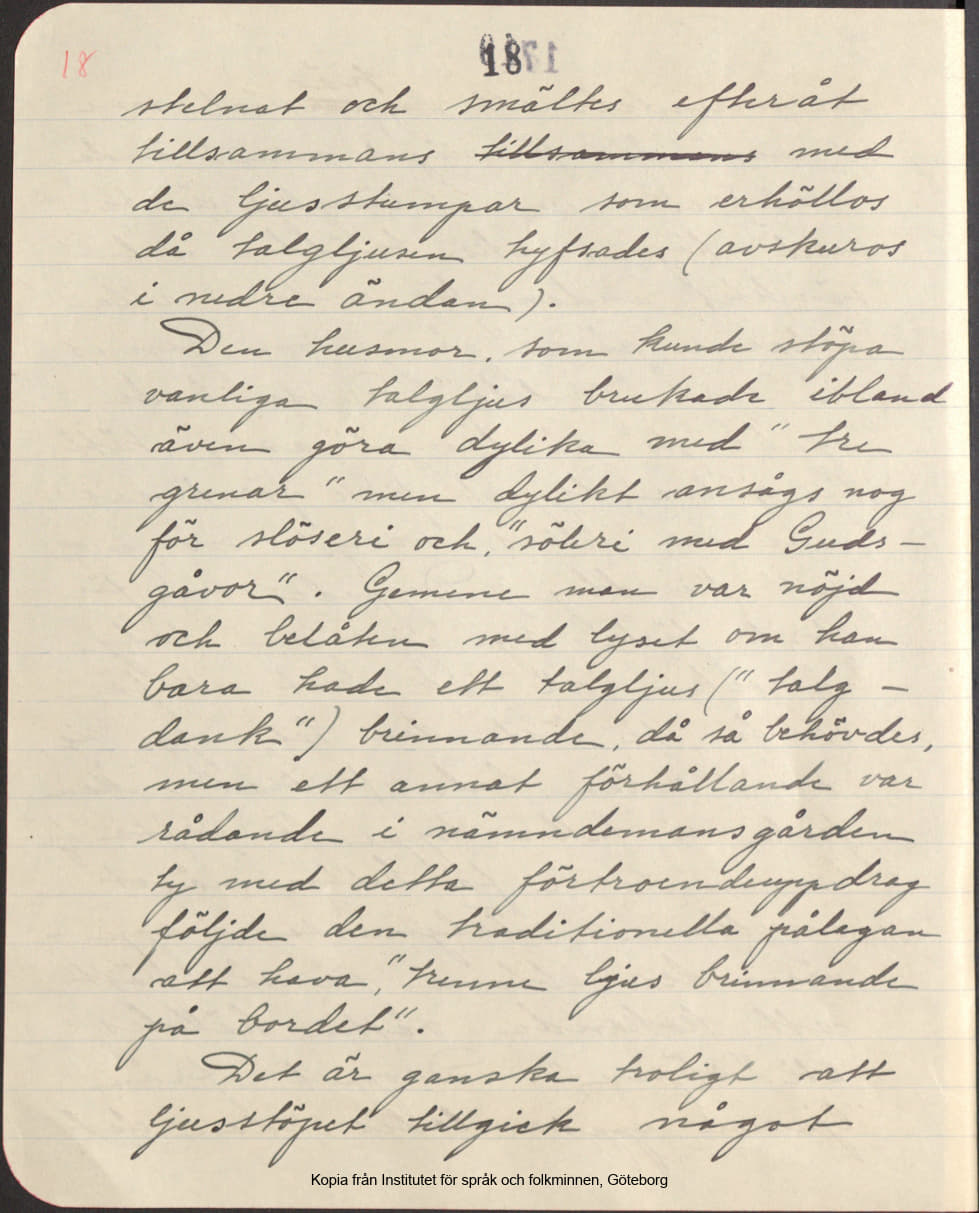 18
18
stelnat och smältes efteråt
tillsammans tillsammans med
de ljusstumpar som erhöllos
då talgljusen hyfsades (avskuros
i nedre ändan).
Den husmor, som kunde stöpa
vanliga talgljus brukade ibland
även göra dylika med "tre
grenar" men dylikt ansågs nog
för slöseri och, "söleri med Guds-
gåvor". Gemene man var nöjd
och belåten med lyset om han
bara hade ett talgljus ("talg-
dank") brinnande, då så behövdes,
men ett annat förhållande var
rådande i nämndemansgården
ty med detta förtroendeuppdrag
följde den traditionella pålagan
att hava, "trenne ljus brinnande
på bordet".
Det är ganska troligt att
ljusstöpet tillgick något
Kopia från Institutet för språk och folkminnen, Göteborg